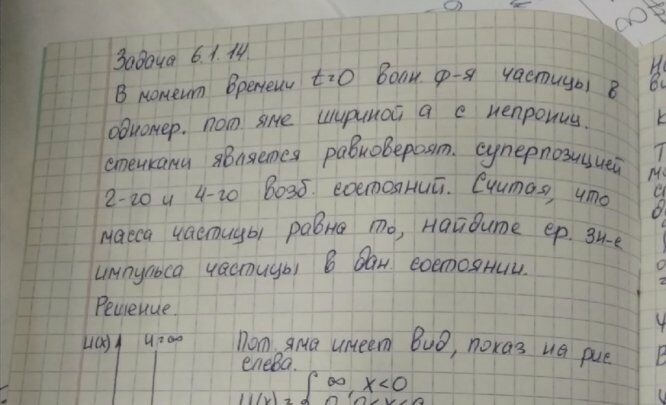 Задача 6.1.14.
В момент времени t=0 волн. ф-я частицы в
одномер. пот. яме шириной а с непрониц.
стенками является равновероят. суперпозицией
2-го и 4-го возб. состояний. Считая, что
масса частицы равна m₀, найдите ср. зн-е
импульса частицы в дан. состоянии.
Решение.
U(x) U=∞ Пот. яма имеет вид, показ. на рис
слева.
∞, x<0
U(x)= 0, 0<x<a